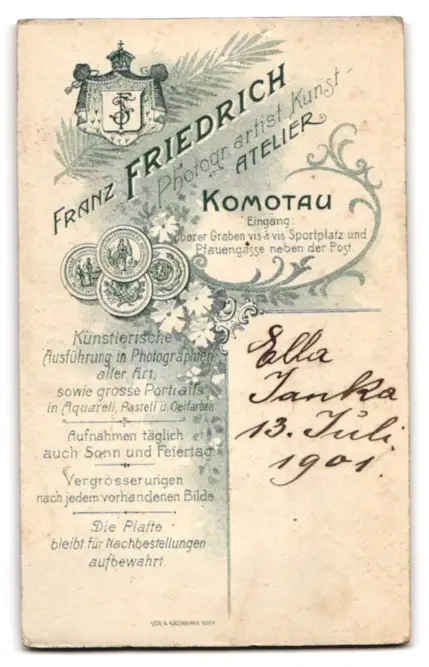 FRANZ FRIEDRICH
Photogr. artist. Kunst-
ATELIER
KOMOTAU
Eingang:
oberer Graben vis-à-vis Sportplatz und
Pfauengasse neben der Post.
Künstlerische
Ausführung in Photographien
aller Art,
sowie grosse Portraits
in Aquarell, Pastell u. Oelfarben
Aufnahmen täglich
auch Sonn und Feiertag.
Vergrösserungen
nach jedem vorhandenen Bilde
Die Platte
bleibt für Nachbestellungen
aufbewahrt.
Ella
Janka
13. Juli
1901.